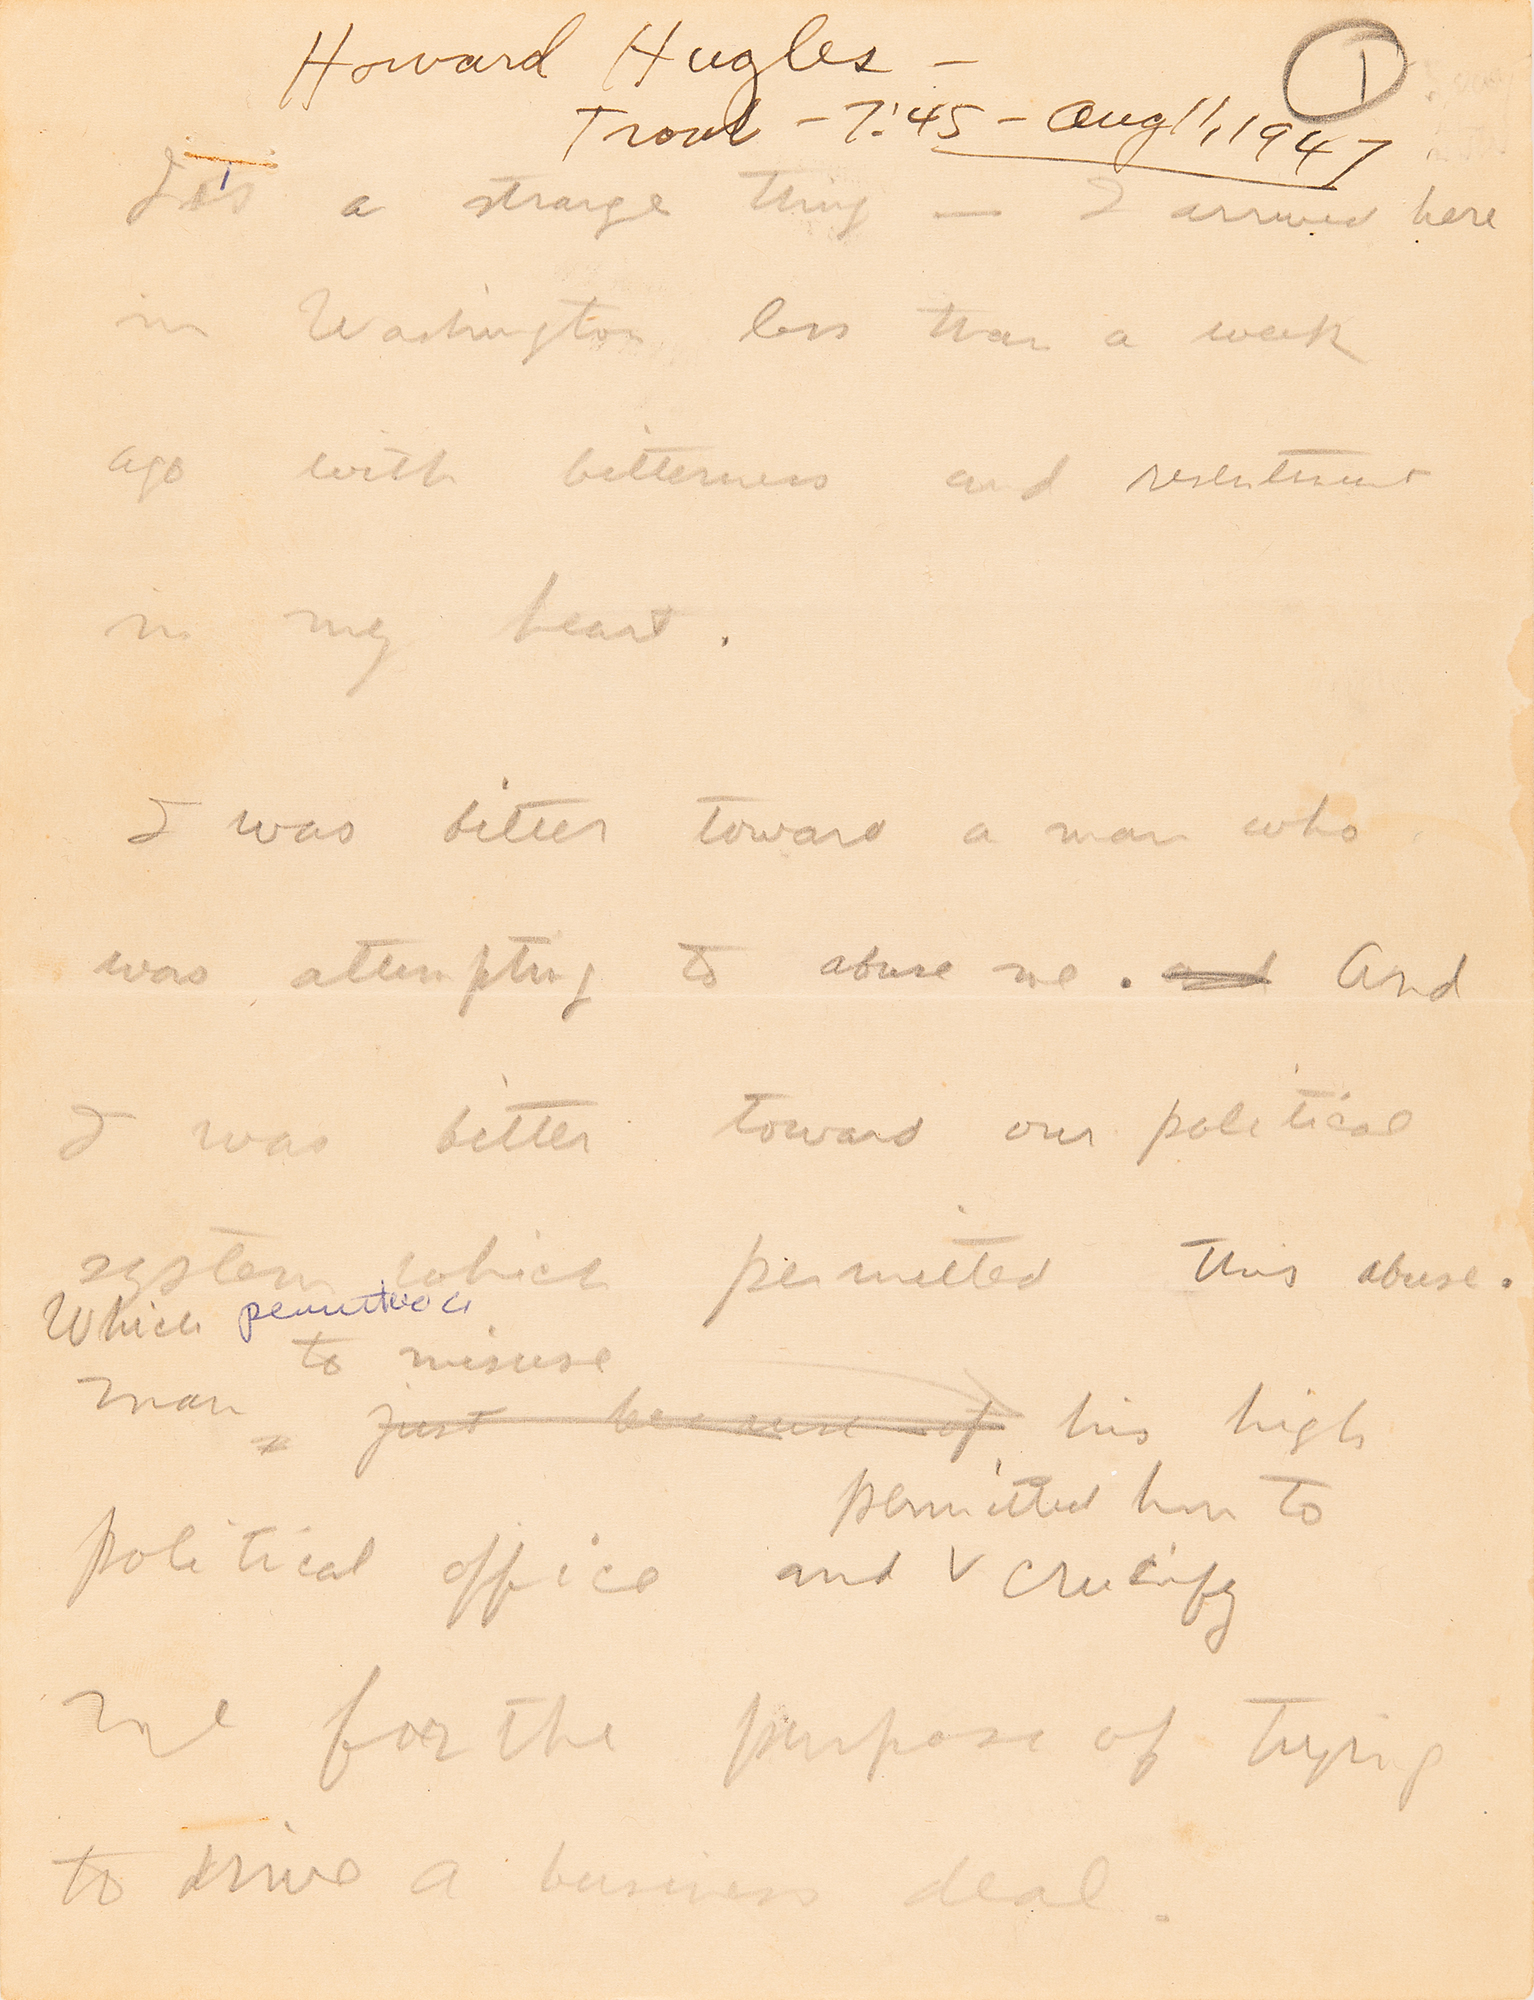 Howard Hughes -
Trout - 7:45 - Aug 11, 1947
1
It's a strange thing — I arrived here
in Washington less than a week
ago with bitterness and resentment
in my heart.
I was bitter toward a man who
was attempting to abuse me. and And
I was bitter toward our political
system which permitted this abuse.
Which permitted a
to misuse
man just because of his high
permitted him to
political office and v crucify
me for the purpose of trying
to drive a business deal.